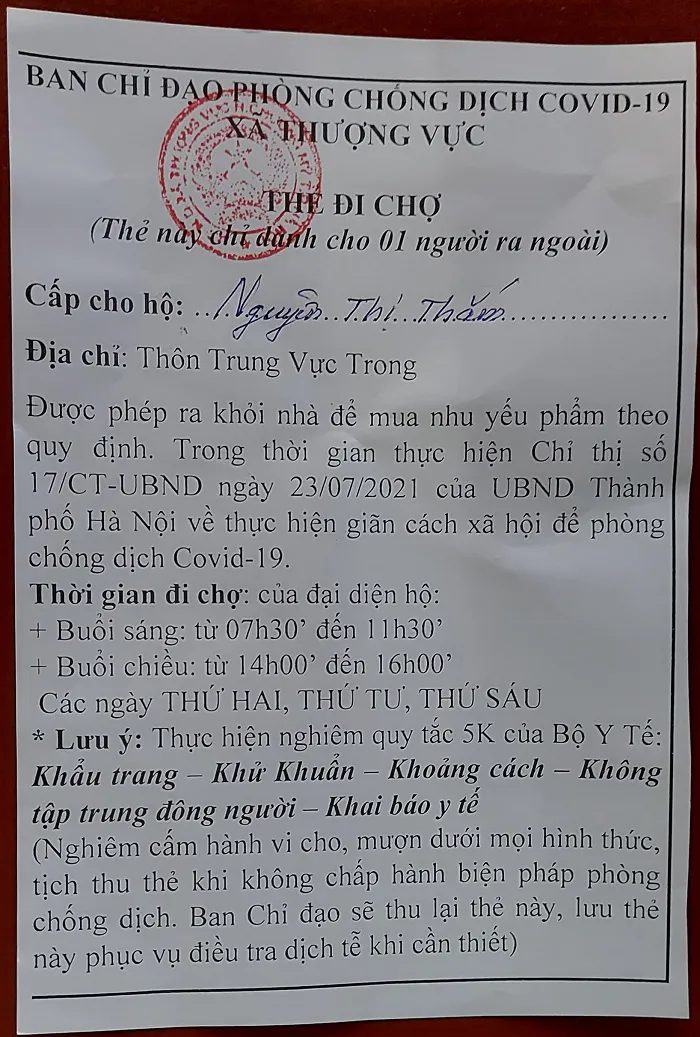 BAN CHỈ ĐẠO PHÒNG CHỐNG DỊCH COVID-19
XÃ THƯỢNG VỰC
THẺ ĐI CHỢ
(Thẻ này chỉ dành cho 01 người ra ngoài)
Cấp cho hộ: Nguyễn Thị Thắm
Địa chỉ: Thôn Trung Vực Trong
Được phép ra khỏi nhà để mua nhu yếu phẩm theo
quy định. Trong thời gian thực hiện Chỉ thị số
17/CT-UBND ngày 23/07/2021 của UBND Thành
phố Hà Nội về thực hiện giãn cách xã hội để phòng
chống dịch Covid-19.
Thời gian đi chợ: của đại diện hộ:
+ Buổi sáng: từ 07h30’ đến 11h30’
+ Buổi chiều: từ 14h00’ đến 16h00’
Các ngày THỨ HAI, THỨ TƯ, THỨ SÁU
* Lưu ý: Thực hiện nghiêm quy tắc 5K của Bộ Y Tế:
Khẩu trang – Khử Khuẩn – Khoảng cách – Không
tập trung đông người – Khai báo y tế
(Nghiêm cấm hành vi cho, mượn dưới mọi hình thức,
tịch thu thẻ khi không chấp hành biện pháp phòng
chống dịch. Ban Chỉ đạo sẽ thu lại thẻ này, lưu thẻ
này phục vụ điều tra dịch tễ khi cần thiết)